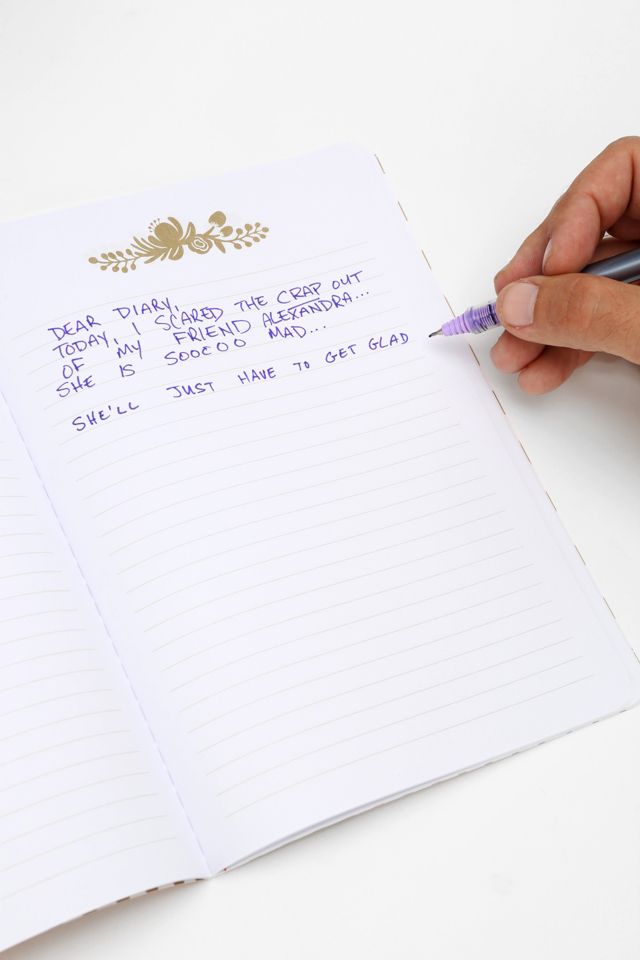 DEAR DIARY,
TODAY, I SCARED THE CRAP OUT
OF MY FRIEND ALEXANDRA...
SHE IS SOOOOO MAD...
SHE'LL JUST HAVE TO GET GLAD